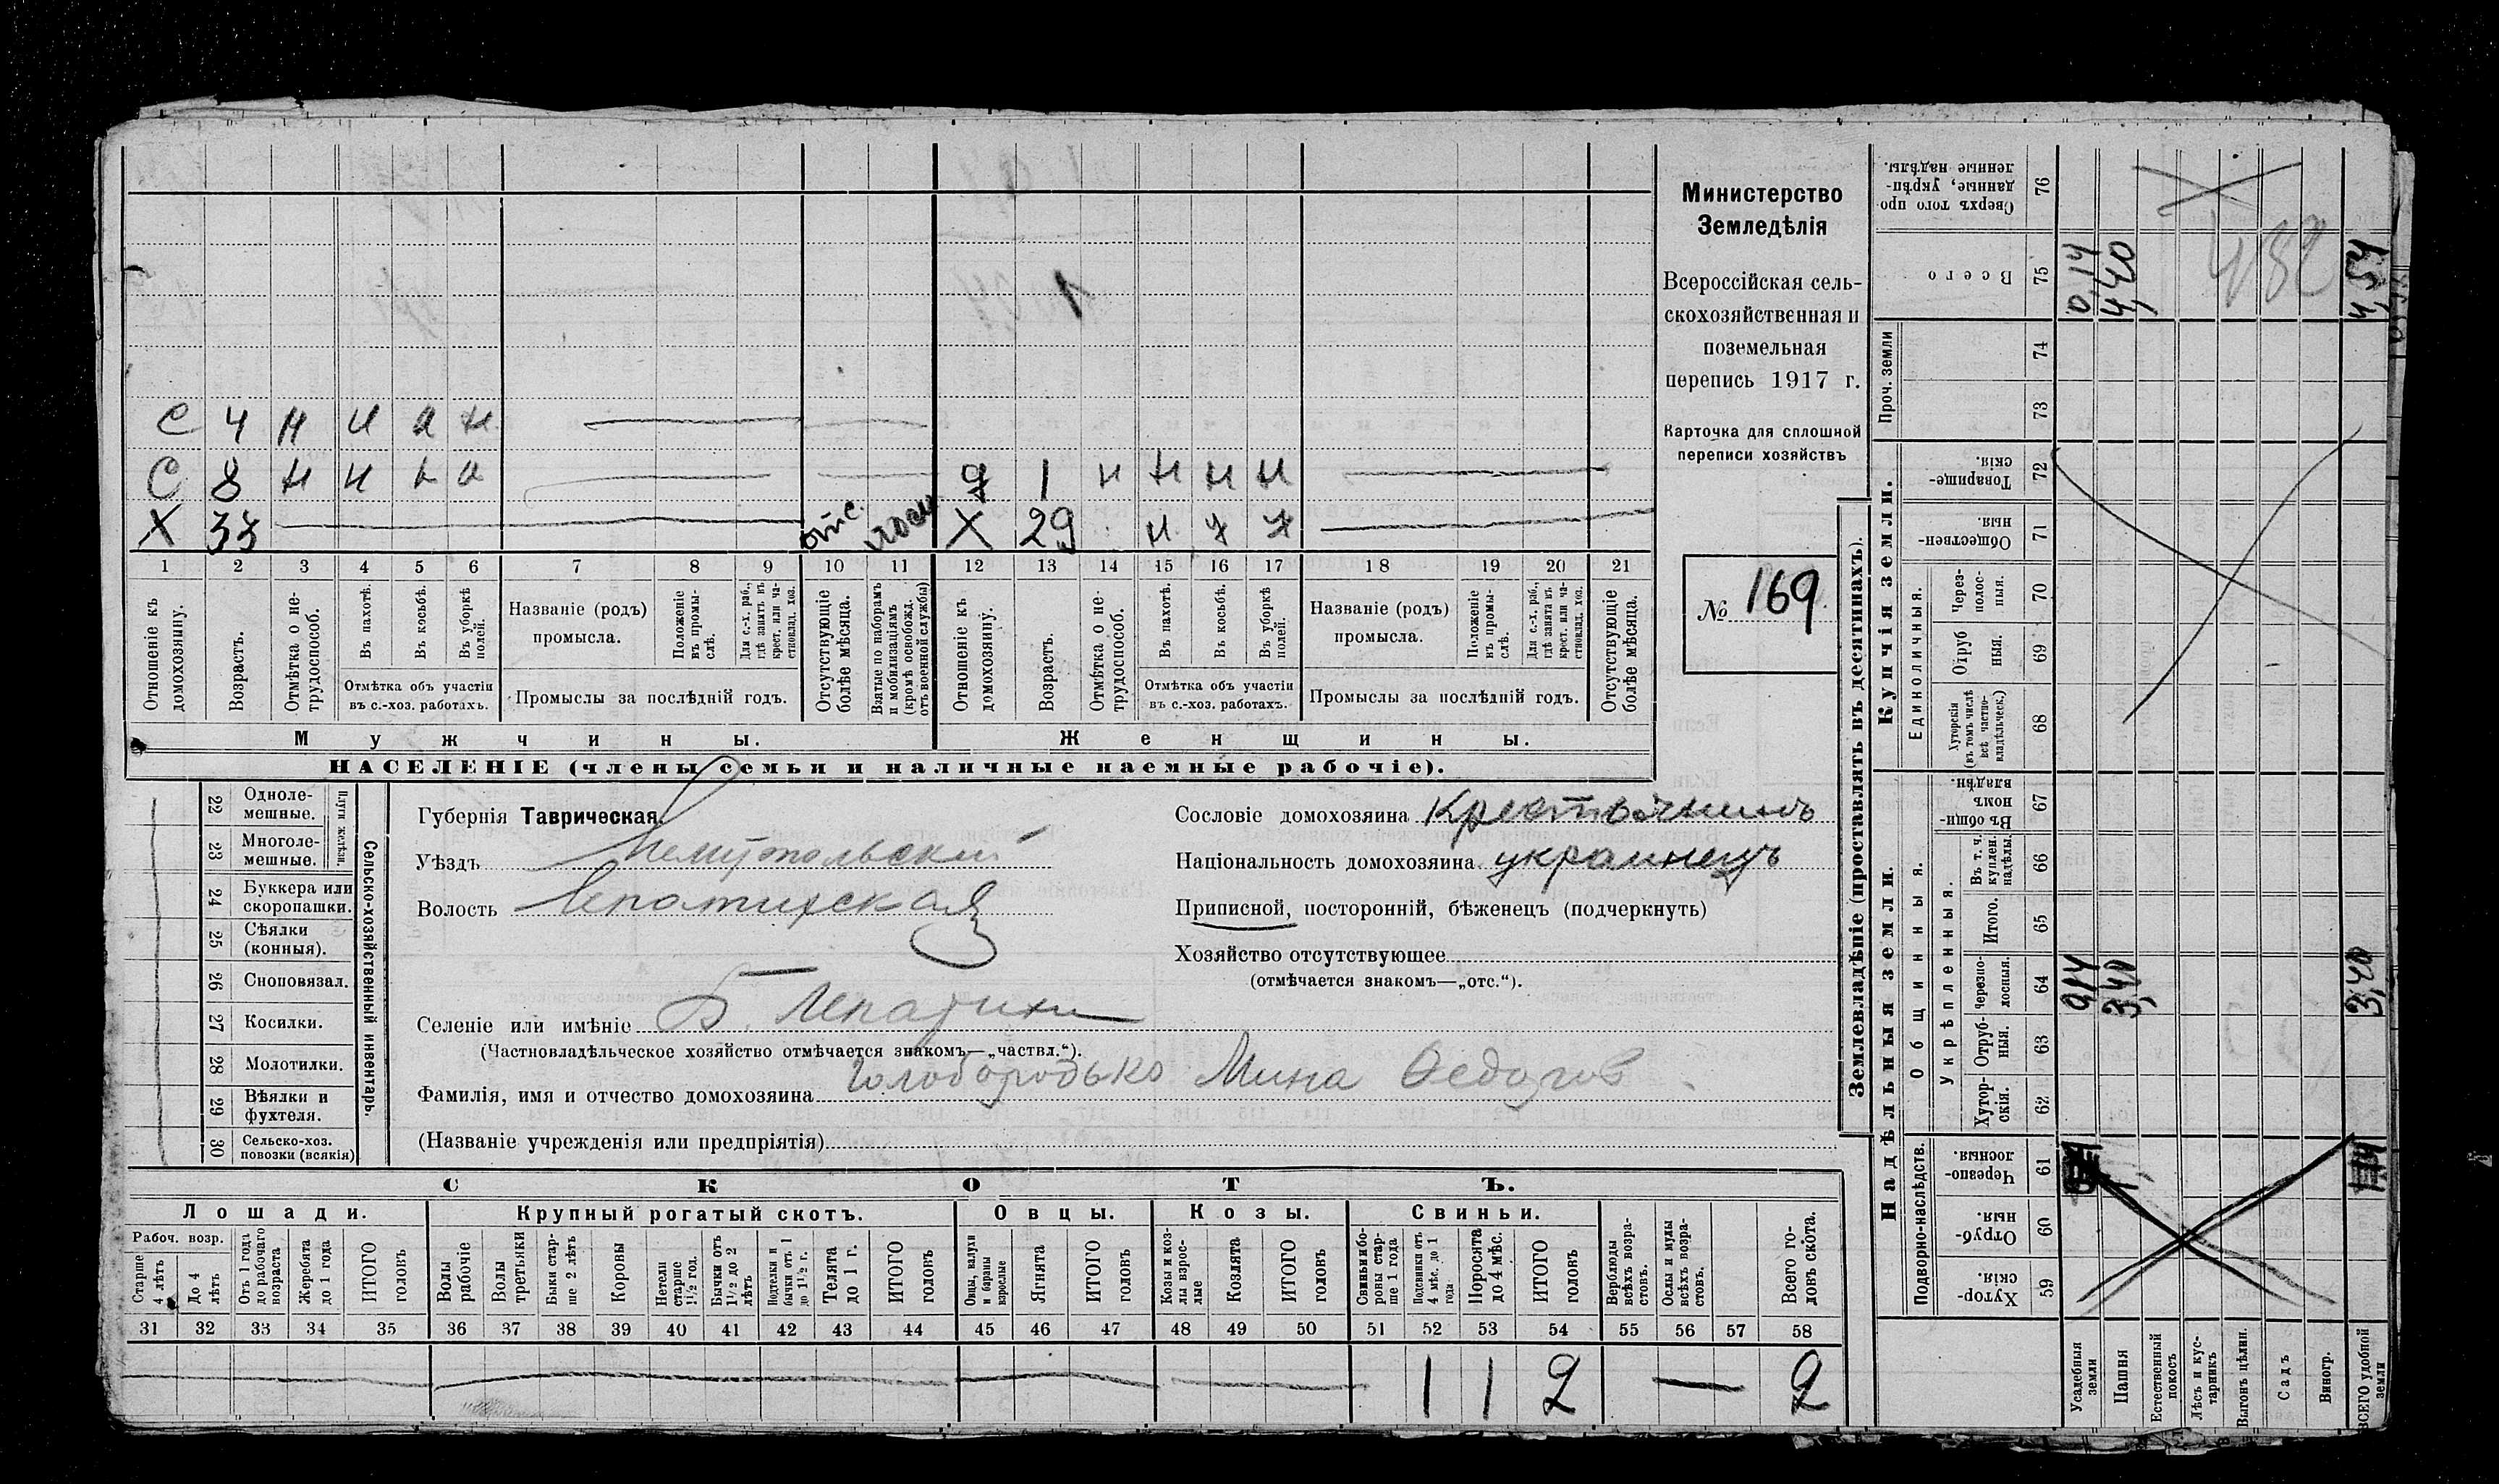 С 4 н н н н
С 8 н н н н д 1 н н н н
Х 33 отс. Х 29 н
1 2 3 4 5 6 7 8 9 10 11 12 13 14 15 16 17 18 19 20 21
Отношеніе къ домохозяину.
Возрастъ.
Отмѣтка о не-
трудоспособ.
Въ пахотѣ.
Въ косьбѣ.
Въ уборкѣ полей.
Отмѣтка объ участіи
въ с.-хоз. работахъ.
Названіе (родъ)
промысла.
Положеніе въ промы-
слѣ.
Для с.-х. раб., гдѣ занятъ въ крест. или ча-
стновлад. хоз.
Промыслы за послѣдній годъ.
Отсутствующіе болѣе мѣсяца.
Взятые по наборамъ и мобилизаціямъ (кромѣ освобожд. отъ военной службы)
Отношеніе къ домохозяину.
Возрастъ.
Отмѣтка о не-
трудоспособ.
Въ пахотѣ.
Въ косьбѣ.
Въ уборкѣ полей.
Отмѣтка объ участіи
въ с.-хоз. работахъ.
Названіе (родъ)
промысла.
Положеніе въ промы-
слѣ.
Для с.-х. раб., гдѣ занята въ крест. или ча-
стновлад. хоз.
Промыслы за послѣдній годъ.
Отсутствующіе болѣе мѣсяца.
Мужчины.
Женщины.
НАСЕЛЕНІЕ (члены семьи и наличные наемные рабочіе).
Министерство
Земледѣлія
Всероссійская сель-
скохозяйственная и
поземельная
перепись 1917 г.
Карточка для сплошной
переписи хозяйствъ
№ 169
Сельско-хозяйственный инвентарь.
Плуги желѣзн.
22 Одноле-
мешные.
23 Многоле-
мешные.
24 Буккера или
скоропашки.
25 Сѣялки
(конныя).
26 Сноповязал.
27 Косилки.
28 Молотилки.
29 Вѣялки и
фухтеля.
30 Сельско-хоз.
повозки (всякія)
Губернія Таврическая.
Уѣздъ Мелитопольскій
Волость Лепатихская
Селеніе или имѣніе Б. Лепатиха
(Частновладѣльческое хозяйство отмѣчается знакомъ—„частвл.“).
Фамилія, имя и отчество домохозяина Голобородько Мина Ѳедоров
(Названіе учрежденія или предпріятія)
Сословіе домохозяина Крестьянинъ
Національность домохозяина украинецъ
Приписной, посторонній, бѣженецъ (подчеркнуть)
Хозяйство отсутствующее
(отмѣчается знакомъ—„отс.“).
СКОТЪ.
Лошади. Крупный рогатый скотъ. Овцы. Козы. Свиньи.
Рабоч. возр.
Старше 4 лѣтъ
До 4 лѣтъ
Отъ 1 года до рабочаго возраста
Жеребята до 1 года
ИТОГО головъ
Волы рабочіе
Волы третьяки
Быки стар-
ше 2 лѣтъ
Коровы
Нетели старше 1½ год.
Бычки отъ 1½ до 2 лѣтъ
Подтелки и бычки отъ 1 до 1½ г.
Телята до 1 г.
ИТОГО головъ
Овцы, валухи и бараны взрослые
Ягнята
ИТОГО головъ
Козы и коз-
лы взрос-
лые
Козлята
ИТОГО головъ
Свиньи и бо-
ровы стар-
ше 1 года
Подсвинки отъ 4 мѣс. до 1 года
Поросята до 4 мѣс.
ИТОГО головъ
Верблюды всѣхъ возра-
стовъ.
Ослы и мулы всѣхъ возра-
стовъ.
Всего го-
ловъ скота.
31 32 33 34 35 36 37 38 39 40 41 42 43 44 45 46 47 48 49 50 51 52 53 54 55 56 57 58
1 1 2 — 2
Землевладѣніе (проставлять въ десятинахъ).
Надѣльныя земли.
Купчія земли.
Проч. земли
Подворно-наслѣдств.
Общинныя.
Укрѣпленныя.
Единоличныя.
Сверхъ того про-
данные, укрѣп-
ленные надѣлы. 76
Всего 75 0,14 4,40 4,54
482
74
73
Товарище-
скія. 72
Обществен-
ныя. 71
Через-
полос-
ныя. 70
Отруб
ныя. 69
Хуторскія (въ томъ числѣ всѣ частно-
владѣльческ.) 68
Въ общин-
номъ владѣн. 67
Въ т. ч. куплен. надѣлы. 66
Итого. 65
Черезпо-
лосныя. 64 0,14 3,40 3,40
Отруб-
ныя. 63
Хутор-
скія. 62
Черезпо-
лосныя. 61 1,14
Отруб-
ныя. 60
Хутор-
скія. 59
Усадебныя земли
Пашня
Естественный покосъ
Лѣсъ и кус-
тарникъ
Выгонъ цѣлин.
Садъ
Виногр.
ВСЕГО удобной земли